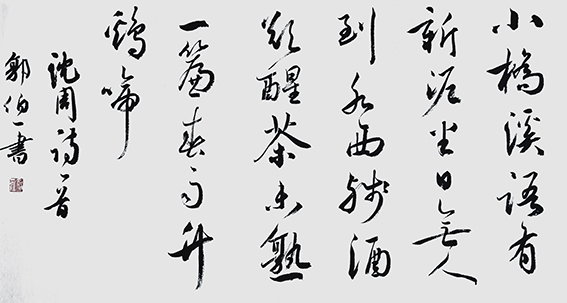 小橋溪路有
新泥半日無人
到水西殘酒
欲醒茶未熟
一簾春雨竹
鷄啼
沈周詩一首
郭伯一書